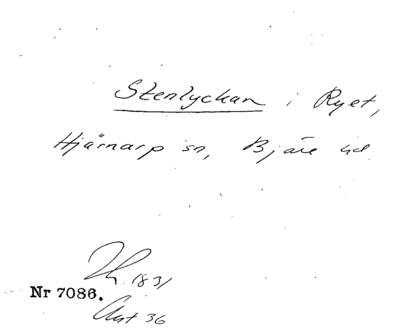 Stenlyckan i Ryet,
Hjärnarp sn, Bjäre hd.
1831
Nr 7086.
36